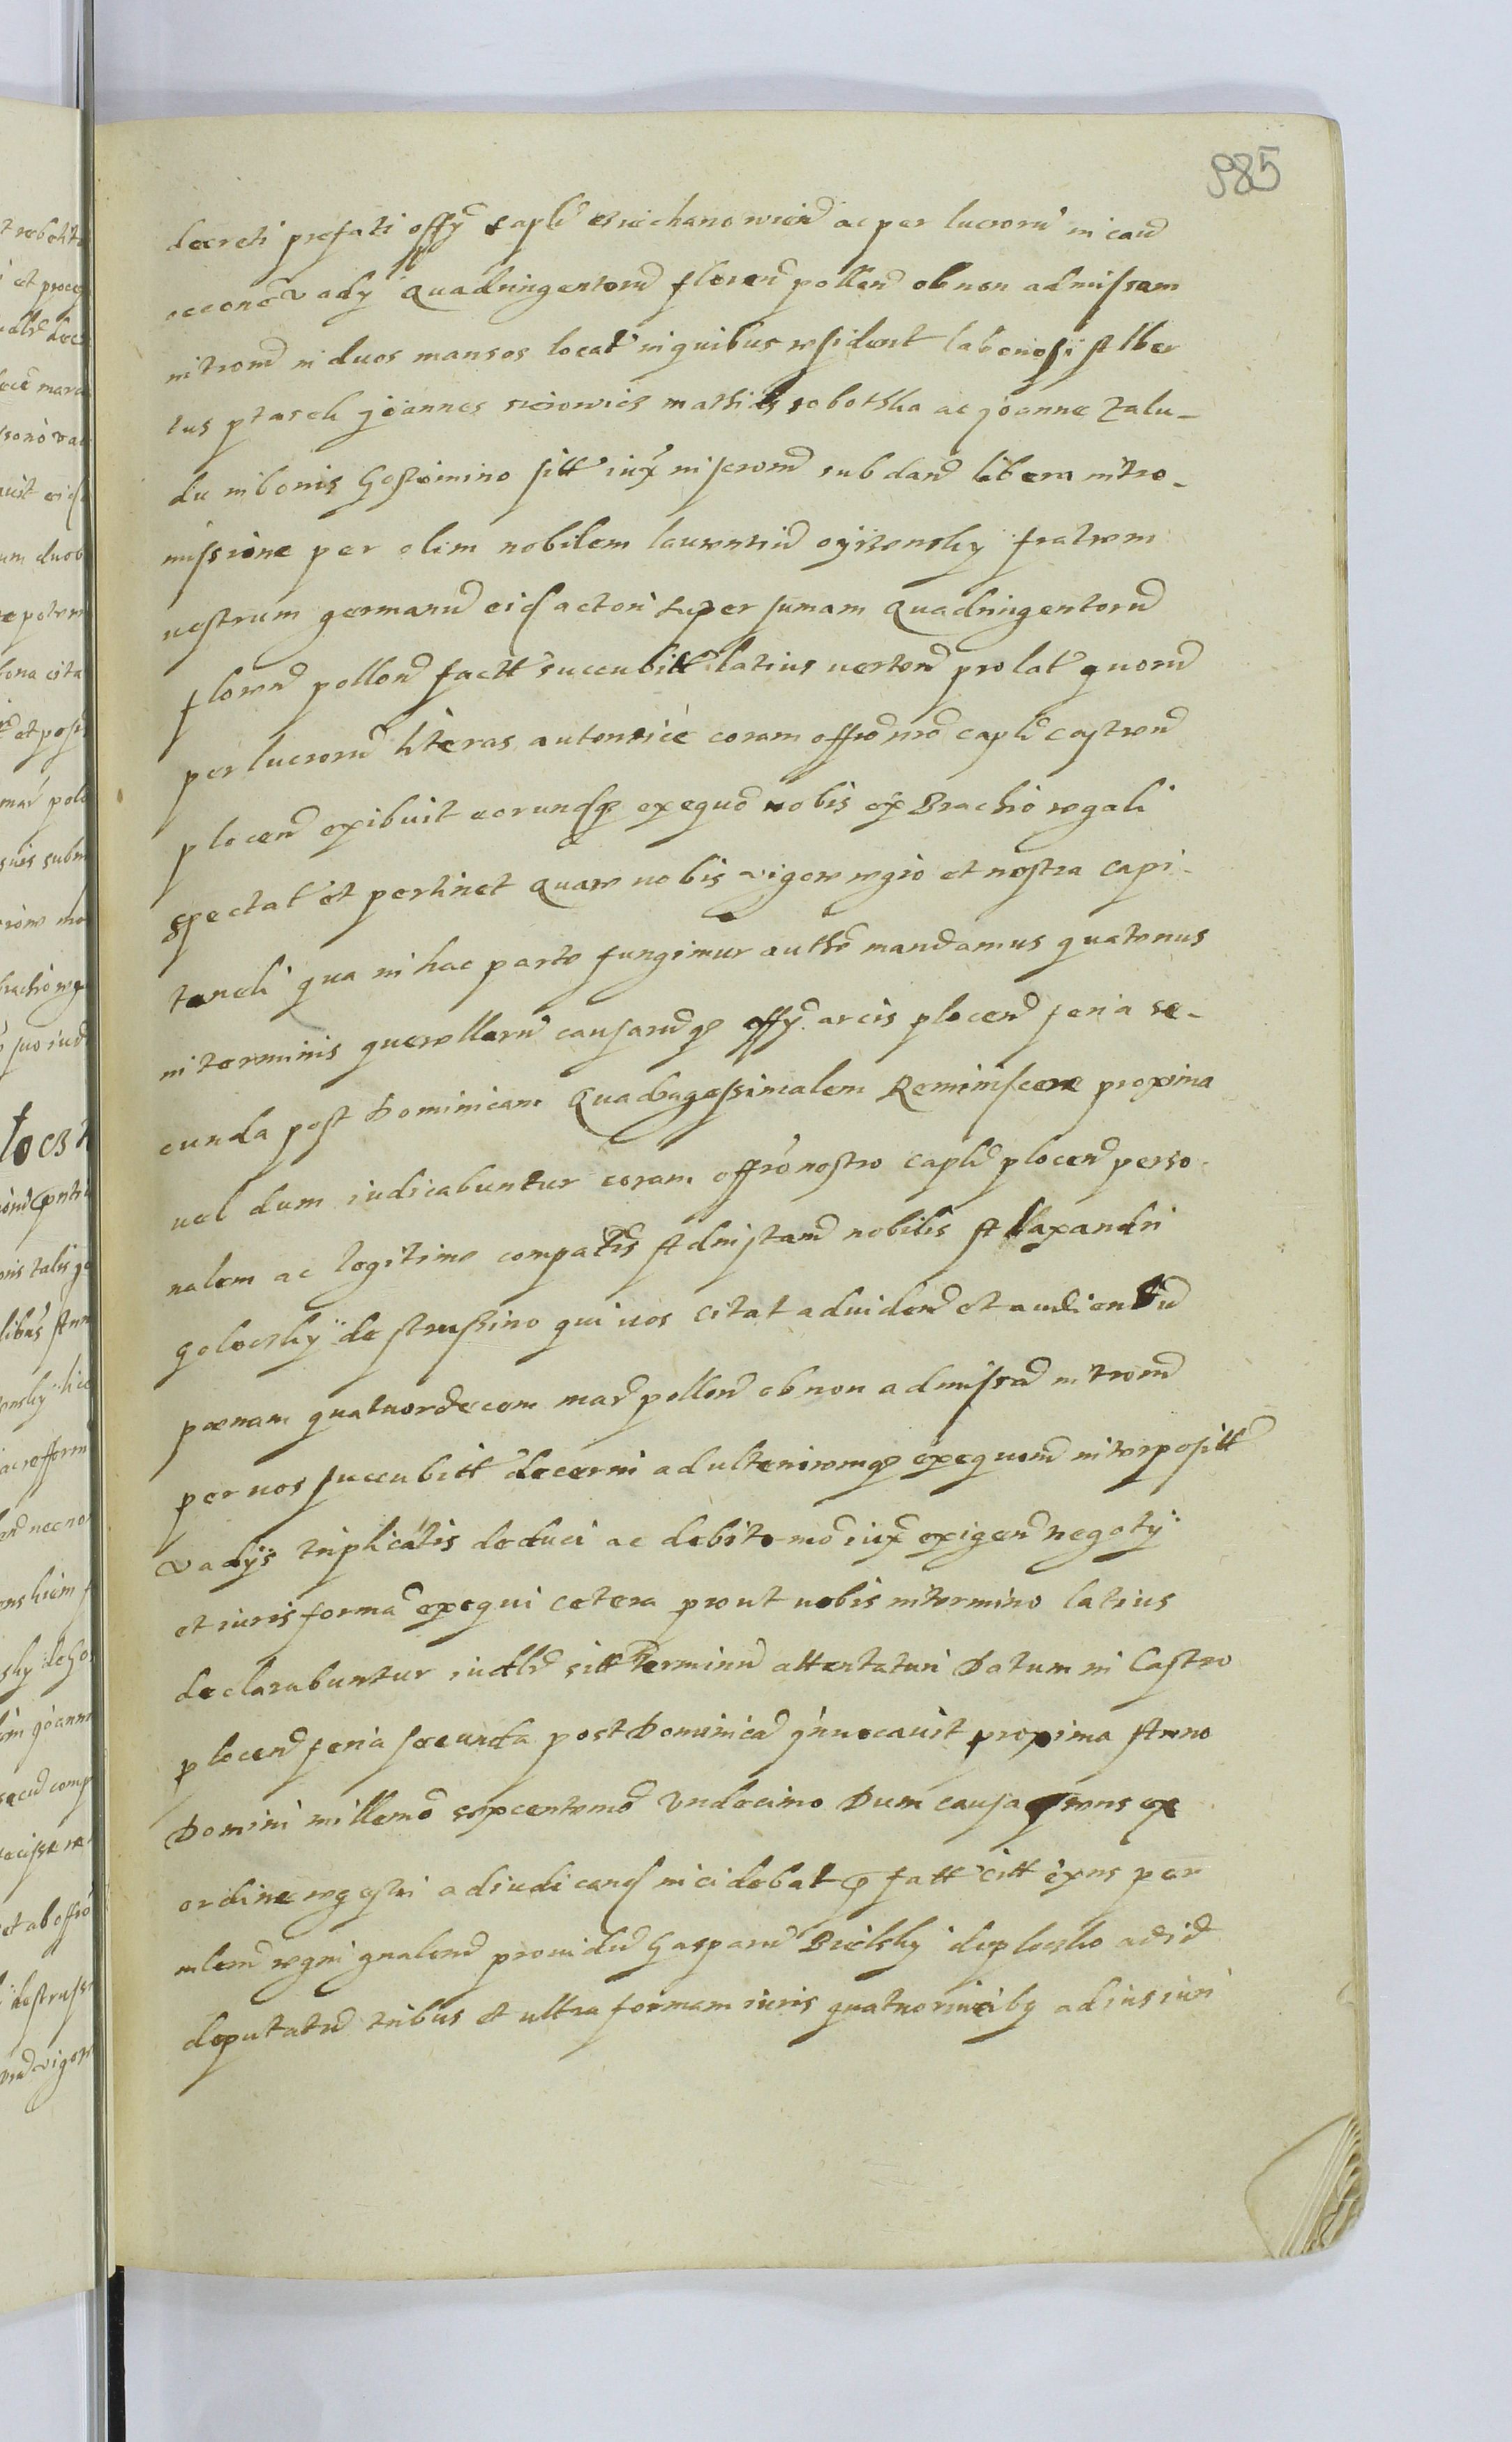 985
decreti prefati offÿ capl Cziechanowien ac per lucrorū in cau
occone vadÿ Quadringentorū floren pollon ob non admissam
introm in duos mansos locat in quibus resident laboriosi Alber
tus ptasek Joannes mathias sobothka ac Joanne Zalu-
du in bonis Gostomino sitt iux inscrom sub dand libera intro-
missione per olim nobilem laurentiū fratrem
vestrum germanū eid actori super sumam Quadringentorū
floren pollon factt succubitt latius uerten prolat quorū
per lucrorū literas autentice coram offo nro capl castren
plocen exibuit eorundq exequo nobis ex Brachio regali
spectat et pertinet Quare uobis vigore regio et nostra capi-
taneli qua in hac parte fungimur autho mandamus quatenus
in terminis querellarū causarūq offÿ arcis plocen feria se-
cunda post Dominicam Quadragessimalem Reminiscere proxima
uel dum iudicabuntur coram offio nostro capl plocen perso-
nalem ac legitime compatis Ad instam nobilis Allexandri
golocskÿ de strussino qui uos citat ad uidend et audiendū
poenam quatuordecem mar pollon ob non admissā introm
per uos succubitt decerni ad ulterioremq exequom interpositt
vadÿs triplicatis deduci ac debito mo iux exigen negotÿ
et iuris forma exequi cetera prout uobis in termino latius
declarabuntur iudlr sitt Terminū attentaturi Datum in Castro
plocen feria secunda post Dominicā Jnuocauit proxima Anno
Domini millemo sexcentemo Vndecimo Dum causa prens ex
ordine regestri adiudicand incidebat pfatt citt exns per
mlem regni gnalem prouidū Gasparū Bielskÿ de plocsko ad id
deputatū tribus et ultra formam iuris quatuor uicibq ad ius iuri